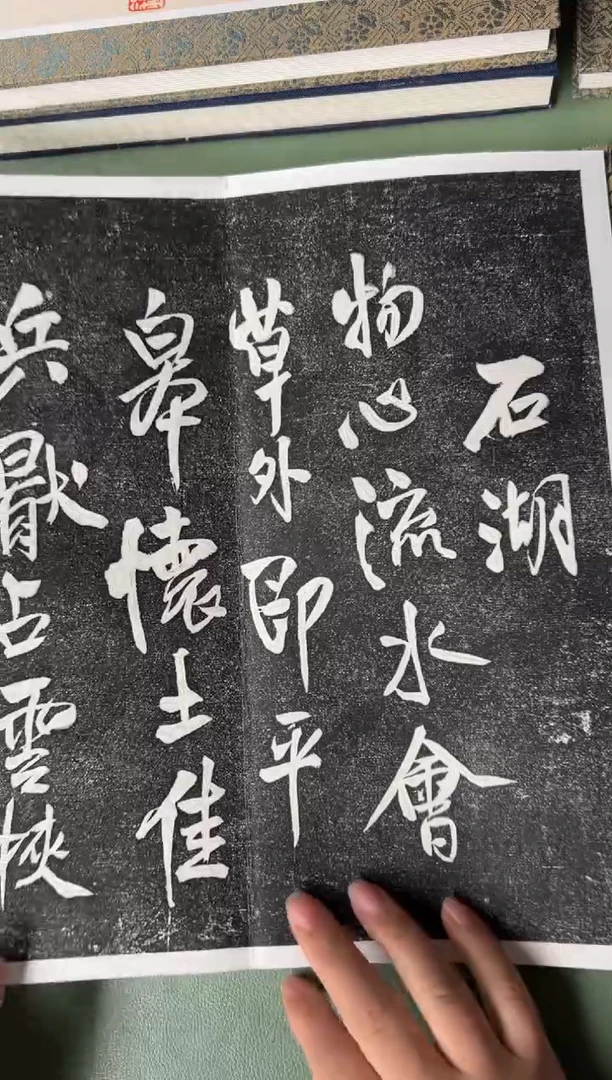 石湖
物心流水會
草外即平
皋懷土佳
兵厭占雲